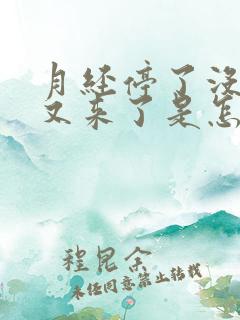 月经停了没
又来了是怎
程昆余
未经同意禁止转载